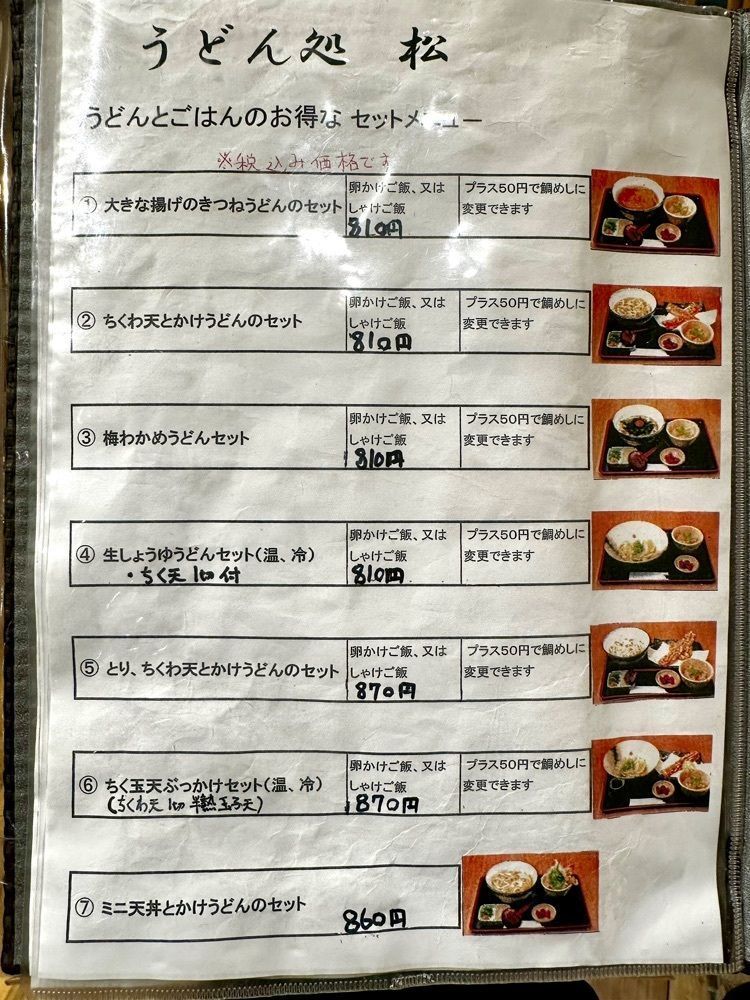 うどん処 松
うどんとごはんのお得な セットメニュー
※税込み価格です
① 大きな揚げのきつねうどんのセット
卵かけご飯、又は
しゃけご飯
810円
プラス50円で鯛めしに
変更できます
② ちくわ天とかけうどんのセット
卵かけご飯、又は
しゃけご飯
810円
プラス50円で鯛めしに
変更できます
③ 梅わかめうどんセット
卵かけご飯、又は
しゃけご飯
810円
プラス50円で鯛めしに
変更できます
④ 生しょうゆうどんセット(温、冷)
・ちく天1切付
卵かけご飯、又は
しゃけご飯
810円
プラス50円で鯛めしに
変更できます
⑤ とり、ちくわ天とかけうどんのセット
卵かけご飯、又は
しゃけご飯
870円
プラス50円で鯛めしに
変更できます
⑥ ちく玉天ぶっかけセット(温、冷)
(ちくわ天1切 半熟玉子天)
卵かけご飯、又は
しゃけご飯
870円
プラス50円で鯛めしに
変更できます
⑦ ミニ天丼とかけうどんのセット
860円